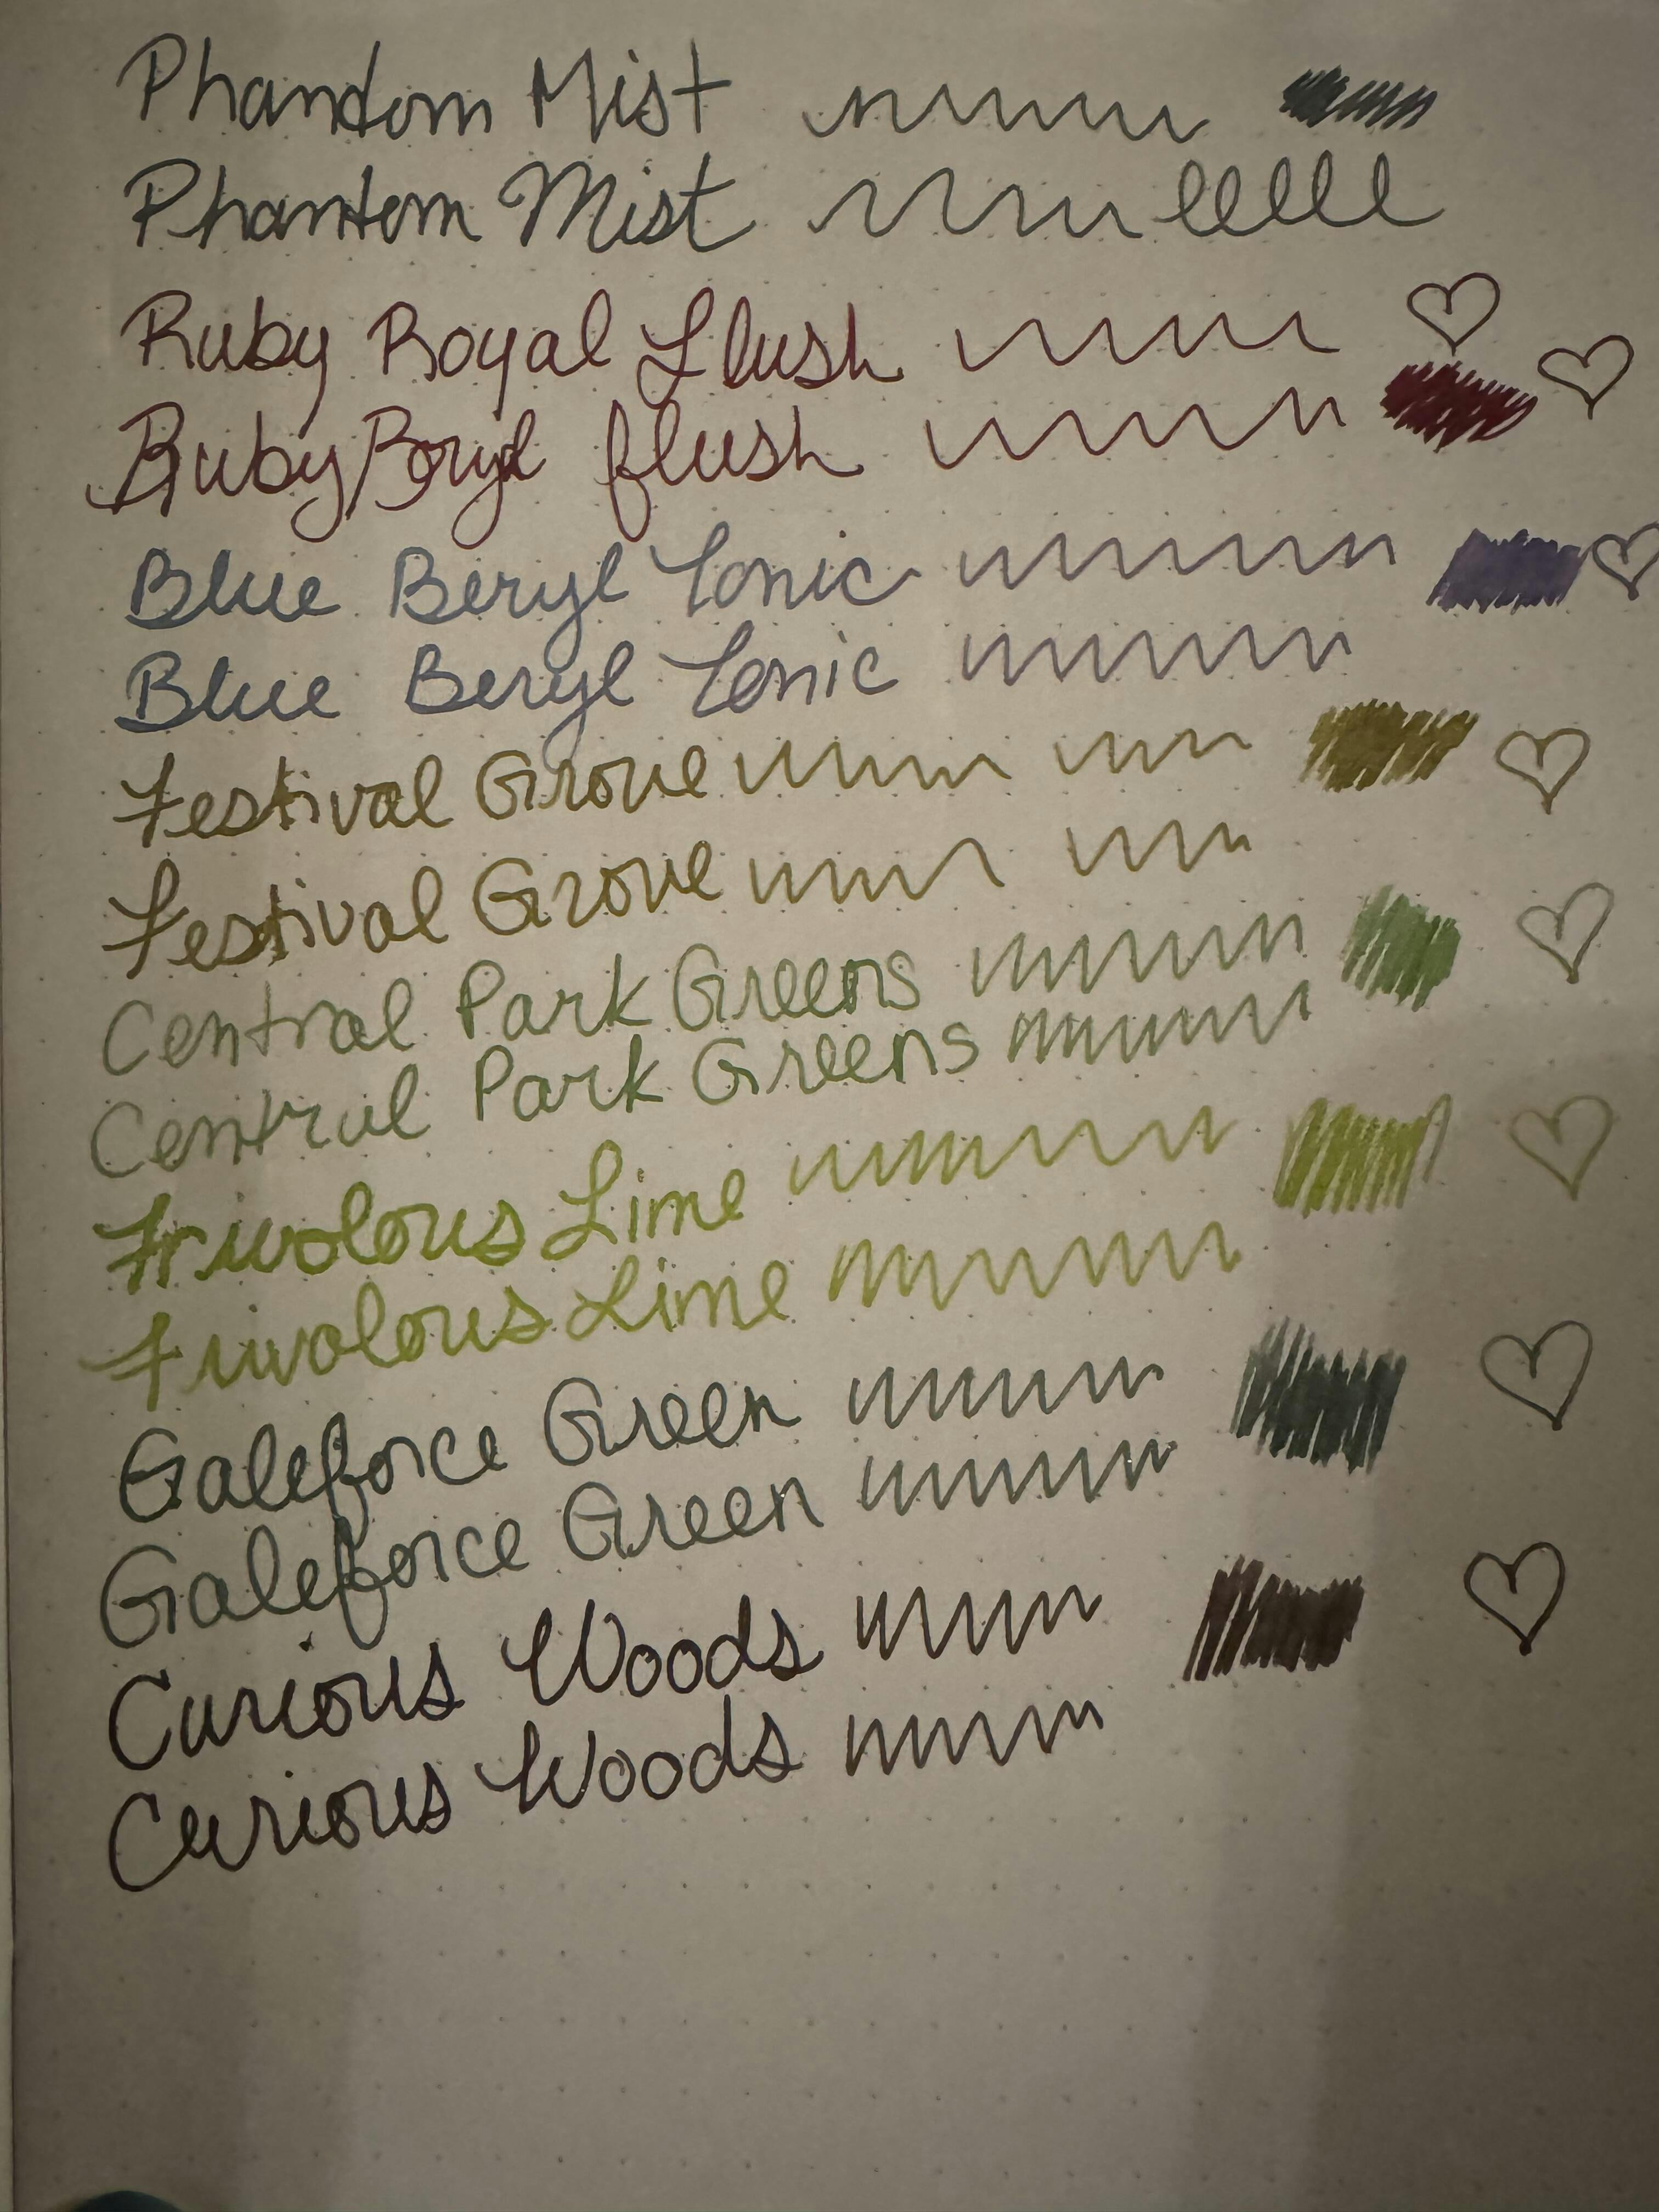 Phandom Mist
Phantom Mist
Ruby Royal Flush
Ruby Royal flush
Blue Beryl Tonic
Blue Beryl Tonic
Festival Grove
Festival Grove
Central Park Greens
Central Park Greens
Frivolous Lime
Frivolous Lime
Galeforce Green
Galeforce Green
Curious Woods
Curious Woods